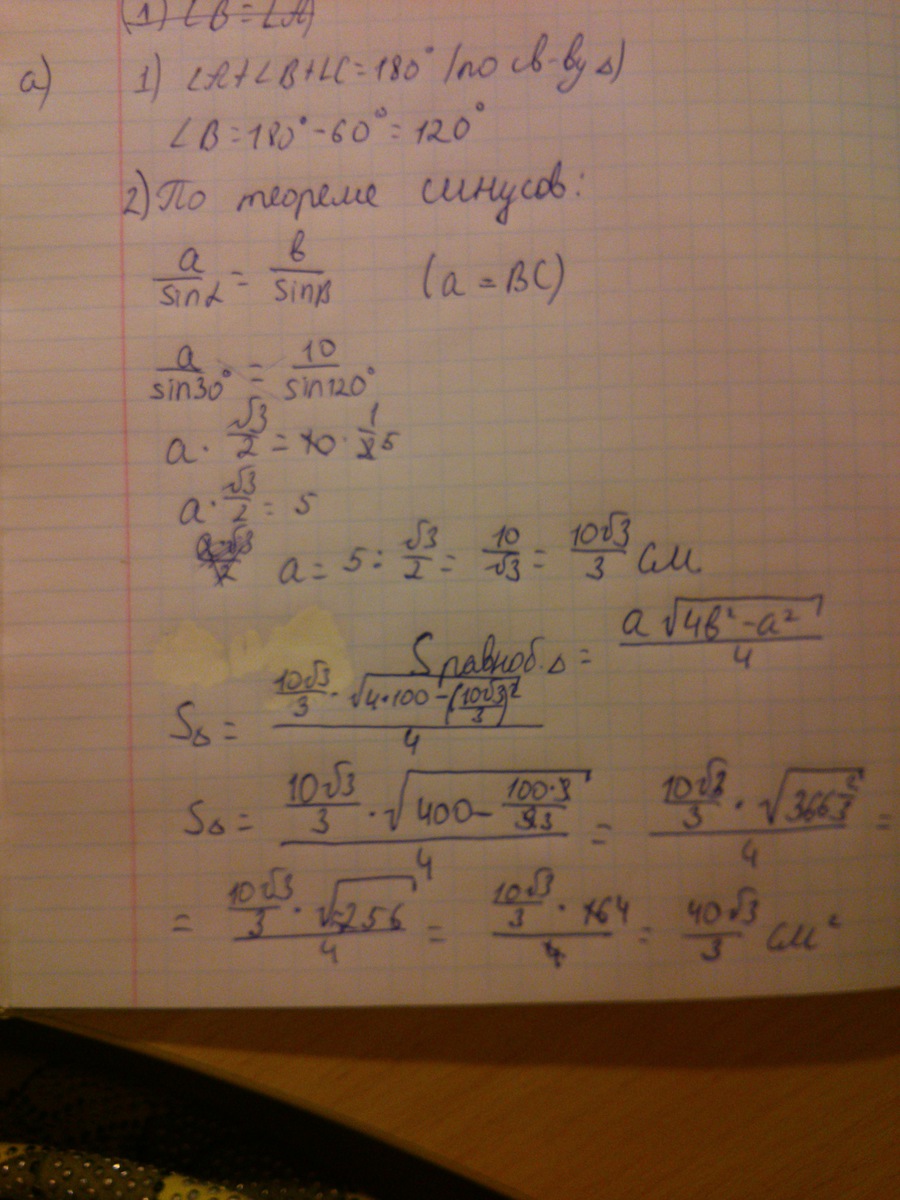 (1) ∠B = ∠A)
а) 1) ∠A+∠B+∠C=180° (по св-ву Δ)
∠B=180°-60°=120°
2) По теореме синусов:
a/sinα = b/sinβ (a = BC)
a/sin30° = 10/sin120°
a · √3/2 = 10 · 1/2 5
a · √3/2 = 5
a = 5 : √3/2 = 10/√3 = 10√3/3 см
S равноб. Δ = a√(4b²-a²)/4
SΔ = (10√3/3 · √(4·100-(10√3/3)²))/4
SΔ = (10√3/3 · √(400-100·3/3·3))/4 = (10√3/3 · √(366 2/3))/4 =
= (10√3/3 · √256)/4 = (10√3/3 · 16 4)/4 = 40√3/3 см²